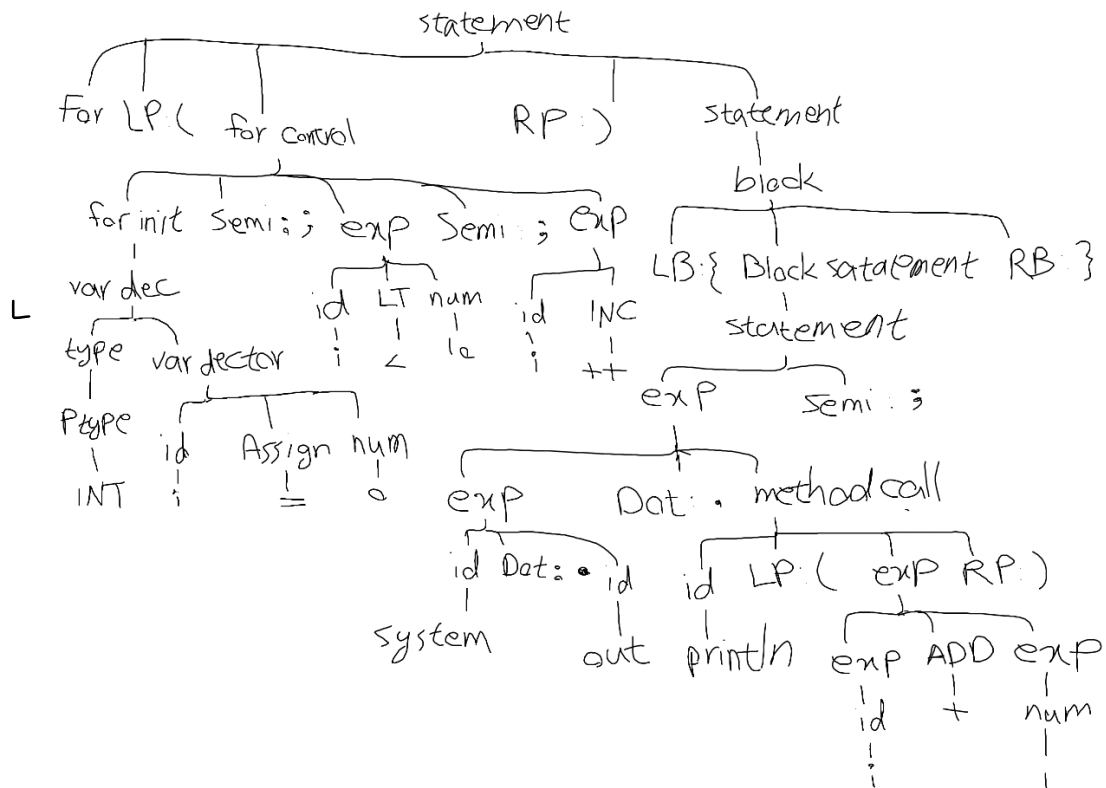 statement
For LP:( for control RP:) statement
block
for init Semi:; exp Semi:; exp
LB:{ Block satatement RB:}
var dec id LT num id INC
L
statement
type var dector i < 10 i ++
exp Semi:;
Ptype id Assign num
INT i = 0
exp Dot:. method call
id Dot:. id id LP:( exp RP:)
system out println exp ADD exp
id + num
i 1